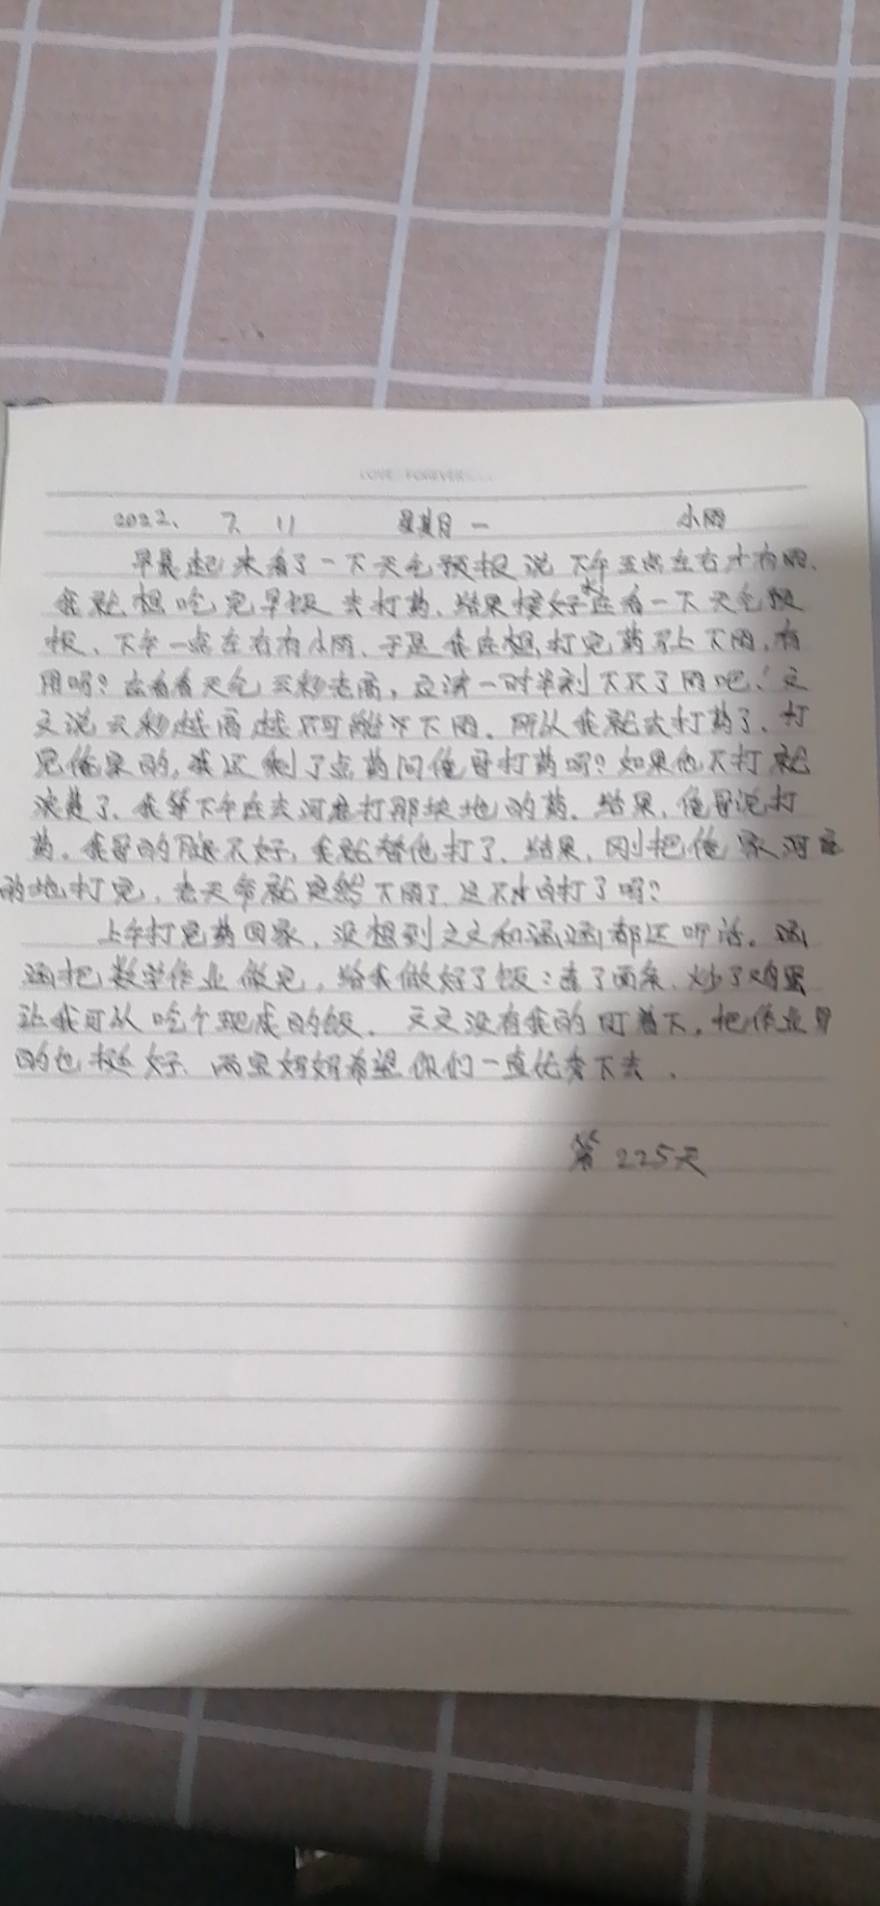 LOVE FOREVER
2022. 7. 11 星期一 小雨
早晨起来看了一下天气预报说下午五点左右才有雨.
我就想吃完早饭去打药.结果接好水在看一下天气预
报、下午一点左右有小雨、于是我在想,打完药马上下雨,有
用吗?在看看天气云彩老高,应该一时半刻下不了雨吧!文
文说云彩越高越不可能下雨.所以我就去打药了、打
完俺家的,我还剩了点药问俺哥打药吗?如果他不打就
浪费了、我等下午在去河底打那块地的药.结果,俺哥说打
药。我哥的腿不好,我就替他打了、结果,刚把俺家河底
的地打完,老天爷就突然下雨了.是不白打了吗?
上午打完药回家,没想到文文和涵涵都还听话。涵
涵把数学作业做完,给我做好了饭:煮了面条、炒了鸡蛋
让我可以吃个现成的饭. 文文没有我的盯着下,把作业写
的也挺好.两宝妈妈希望你们一直优秀下去.
第225天